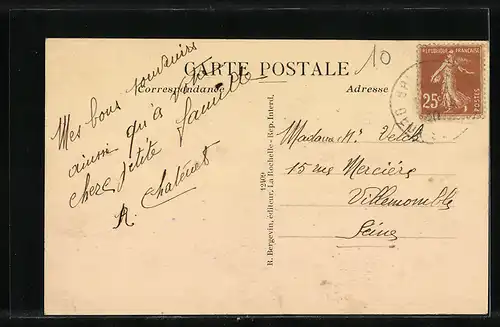 CARTE POSTALE
Correspondance
Adresse
10
REPUBLIQUE FRANÇAISE
25c
POSTES
Mes bons souvenirs
ainsi qu'à votre
chère petite famille
R. Chatenet
12409
R. Bergevin, éditeur, La Rochelle - Rep. Interd.
Madame
15 rue Mercière
Villemomble
Seine